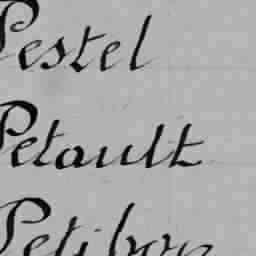 Pestel
Petault
Petibon